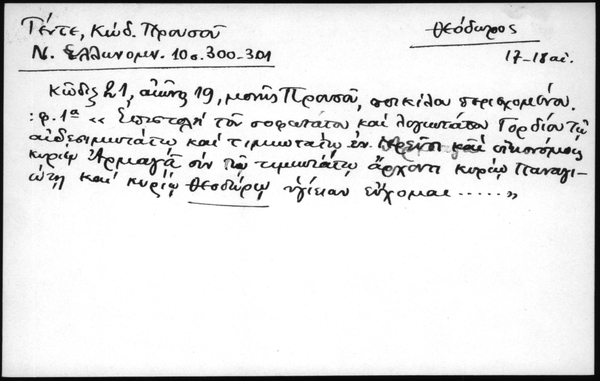 Γέντε, Κώδ. Προυσοῦ
Θεόδωρος
Ν. Ἑλληνομν. 10 σ. 300-301
17-18 αἰ.
Κῶδιξ 21, αἰῶνος 19, μονῆς Προυσοῦ, ποικίλου περιεχομένου.
: φ. 1α « Ἐπιστολὴ τοῦ σοφωτάτου καὶ λογιωτάτου Γορδίου τῷ
αἰδεσιμωτάτῳ καὶ τιμιωτάτῳ ἐν καὶ οἰκονόμοις
κυρίῳ σὺν τῷ τιμιωτάτῳ ἄρχοντι κυρίῳ Παναγι-
ώτῃ καὶ κυρίῳ Θεοδώρῳ ὑγίειαν εὔχομαι ..... »